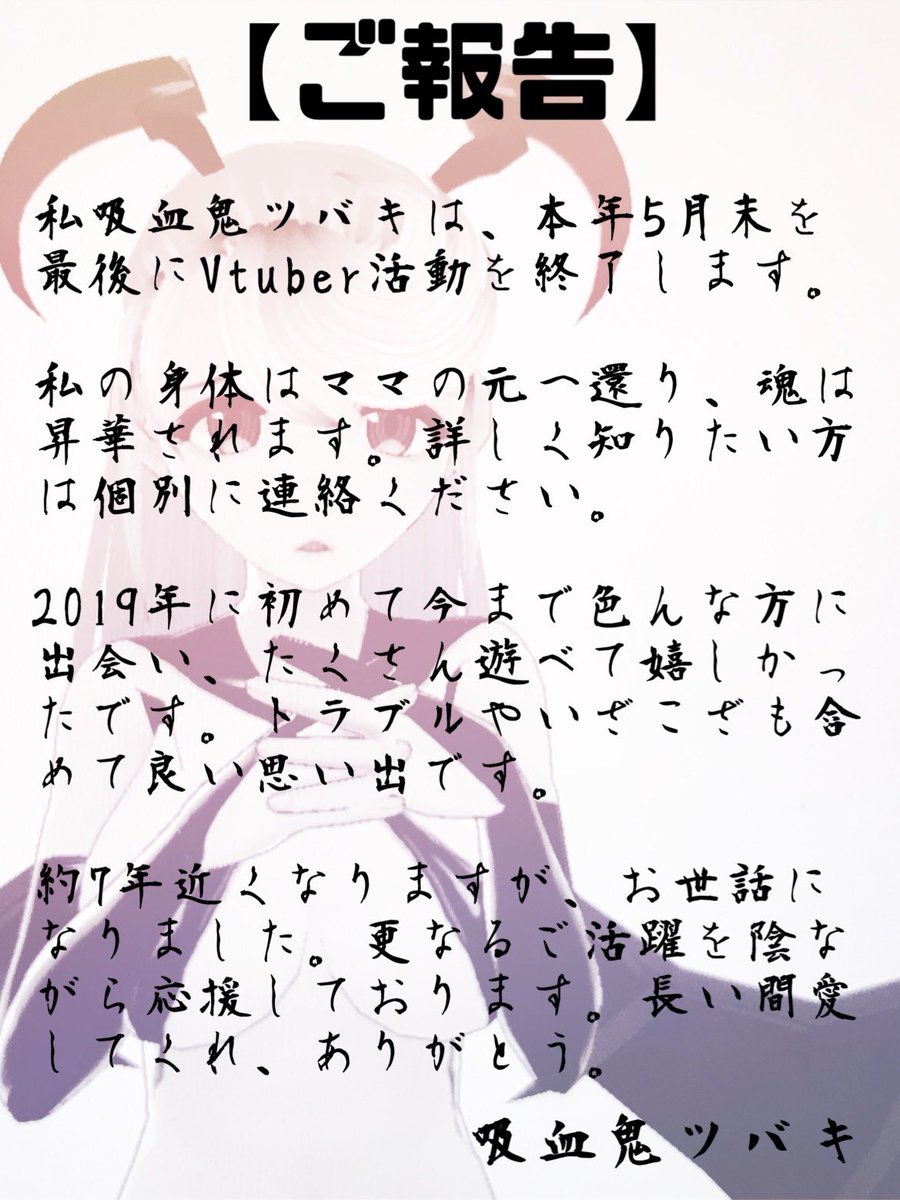 【ご報告】
私吸血鬼ツバキは、本年5月末を
最後にVtuber活動を終了します。
私の身体はママの元へ還り、魂は
昇華されます。詳しく知りたい方
は個別に連絡ください。
2019年に初めて今まで色んな方に
出会い、たくさん遊べて嬉しかっ
たです。トラブルやいざこざも含
めて良い思い出です。
約7年近くなりますが、お世話に
なりました。更なるご活躍を陰な
がら応援しております。長い間愛
してくれ、ありがとう。
吸血鬼ツバキ